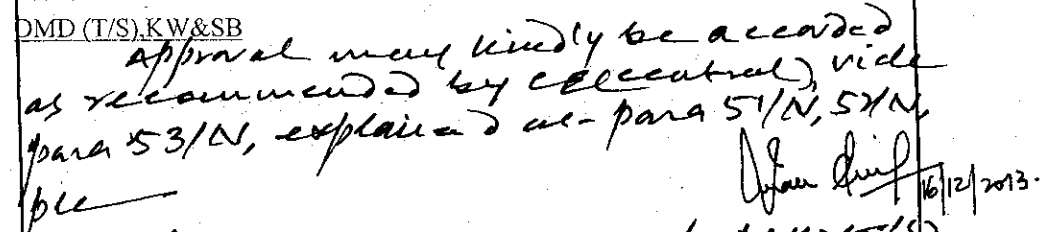 DMD (T/S),KW&SB
Approval may kindly be accorded
as recommended by CE(Central) vide
para 53/N, explained at para 51/N, 52/N,
16/12/2013.